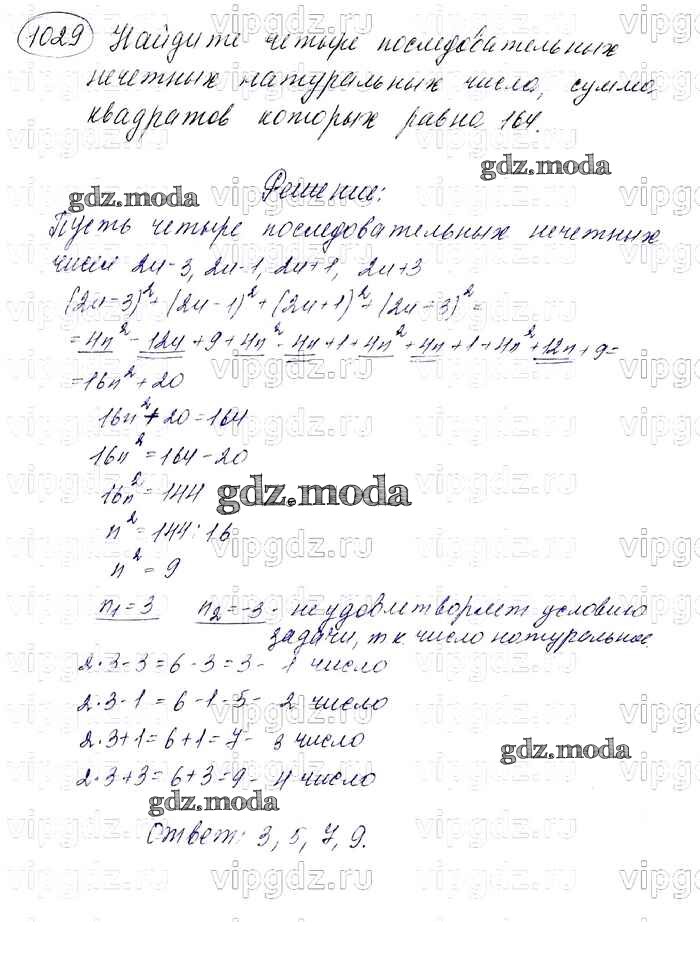 1029 Найдите четыре последовательных
нечетных натуральных числа, сумма
квадратов которых равна 164.
gdz.moda
Решение:
gdz.moda
Пусть четыре последовательных нечетных
числа 2n-3, 2n-1, 2n+1, 2n+3
(2n-3)²+(2n-1)²+(2n+1)²+(2n+3)²=
=4n²-12n+9+4n²-4n+1+4n²+4n+1+4n²+12n+9=
=16n²+20
16n²+20=164
16n²=164-20
16n²=144
gdz.moda
n²=144:16
n²=9
n₁=3 n₂=-3 - не удовлетворяет условию
задачи, т к. число натуральное.
2·3-3=6-3=3- 1 число
2·3-1=6-1=5- 2 число
2·3+1=6+1=7- 3 число
gdz.moda
2·3+3=6+3=9- 4 число
gdz.moda
Ответ: 3, 5, 7, 9.
vipgdz.ru